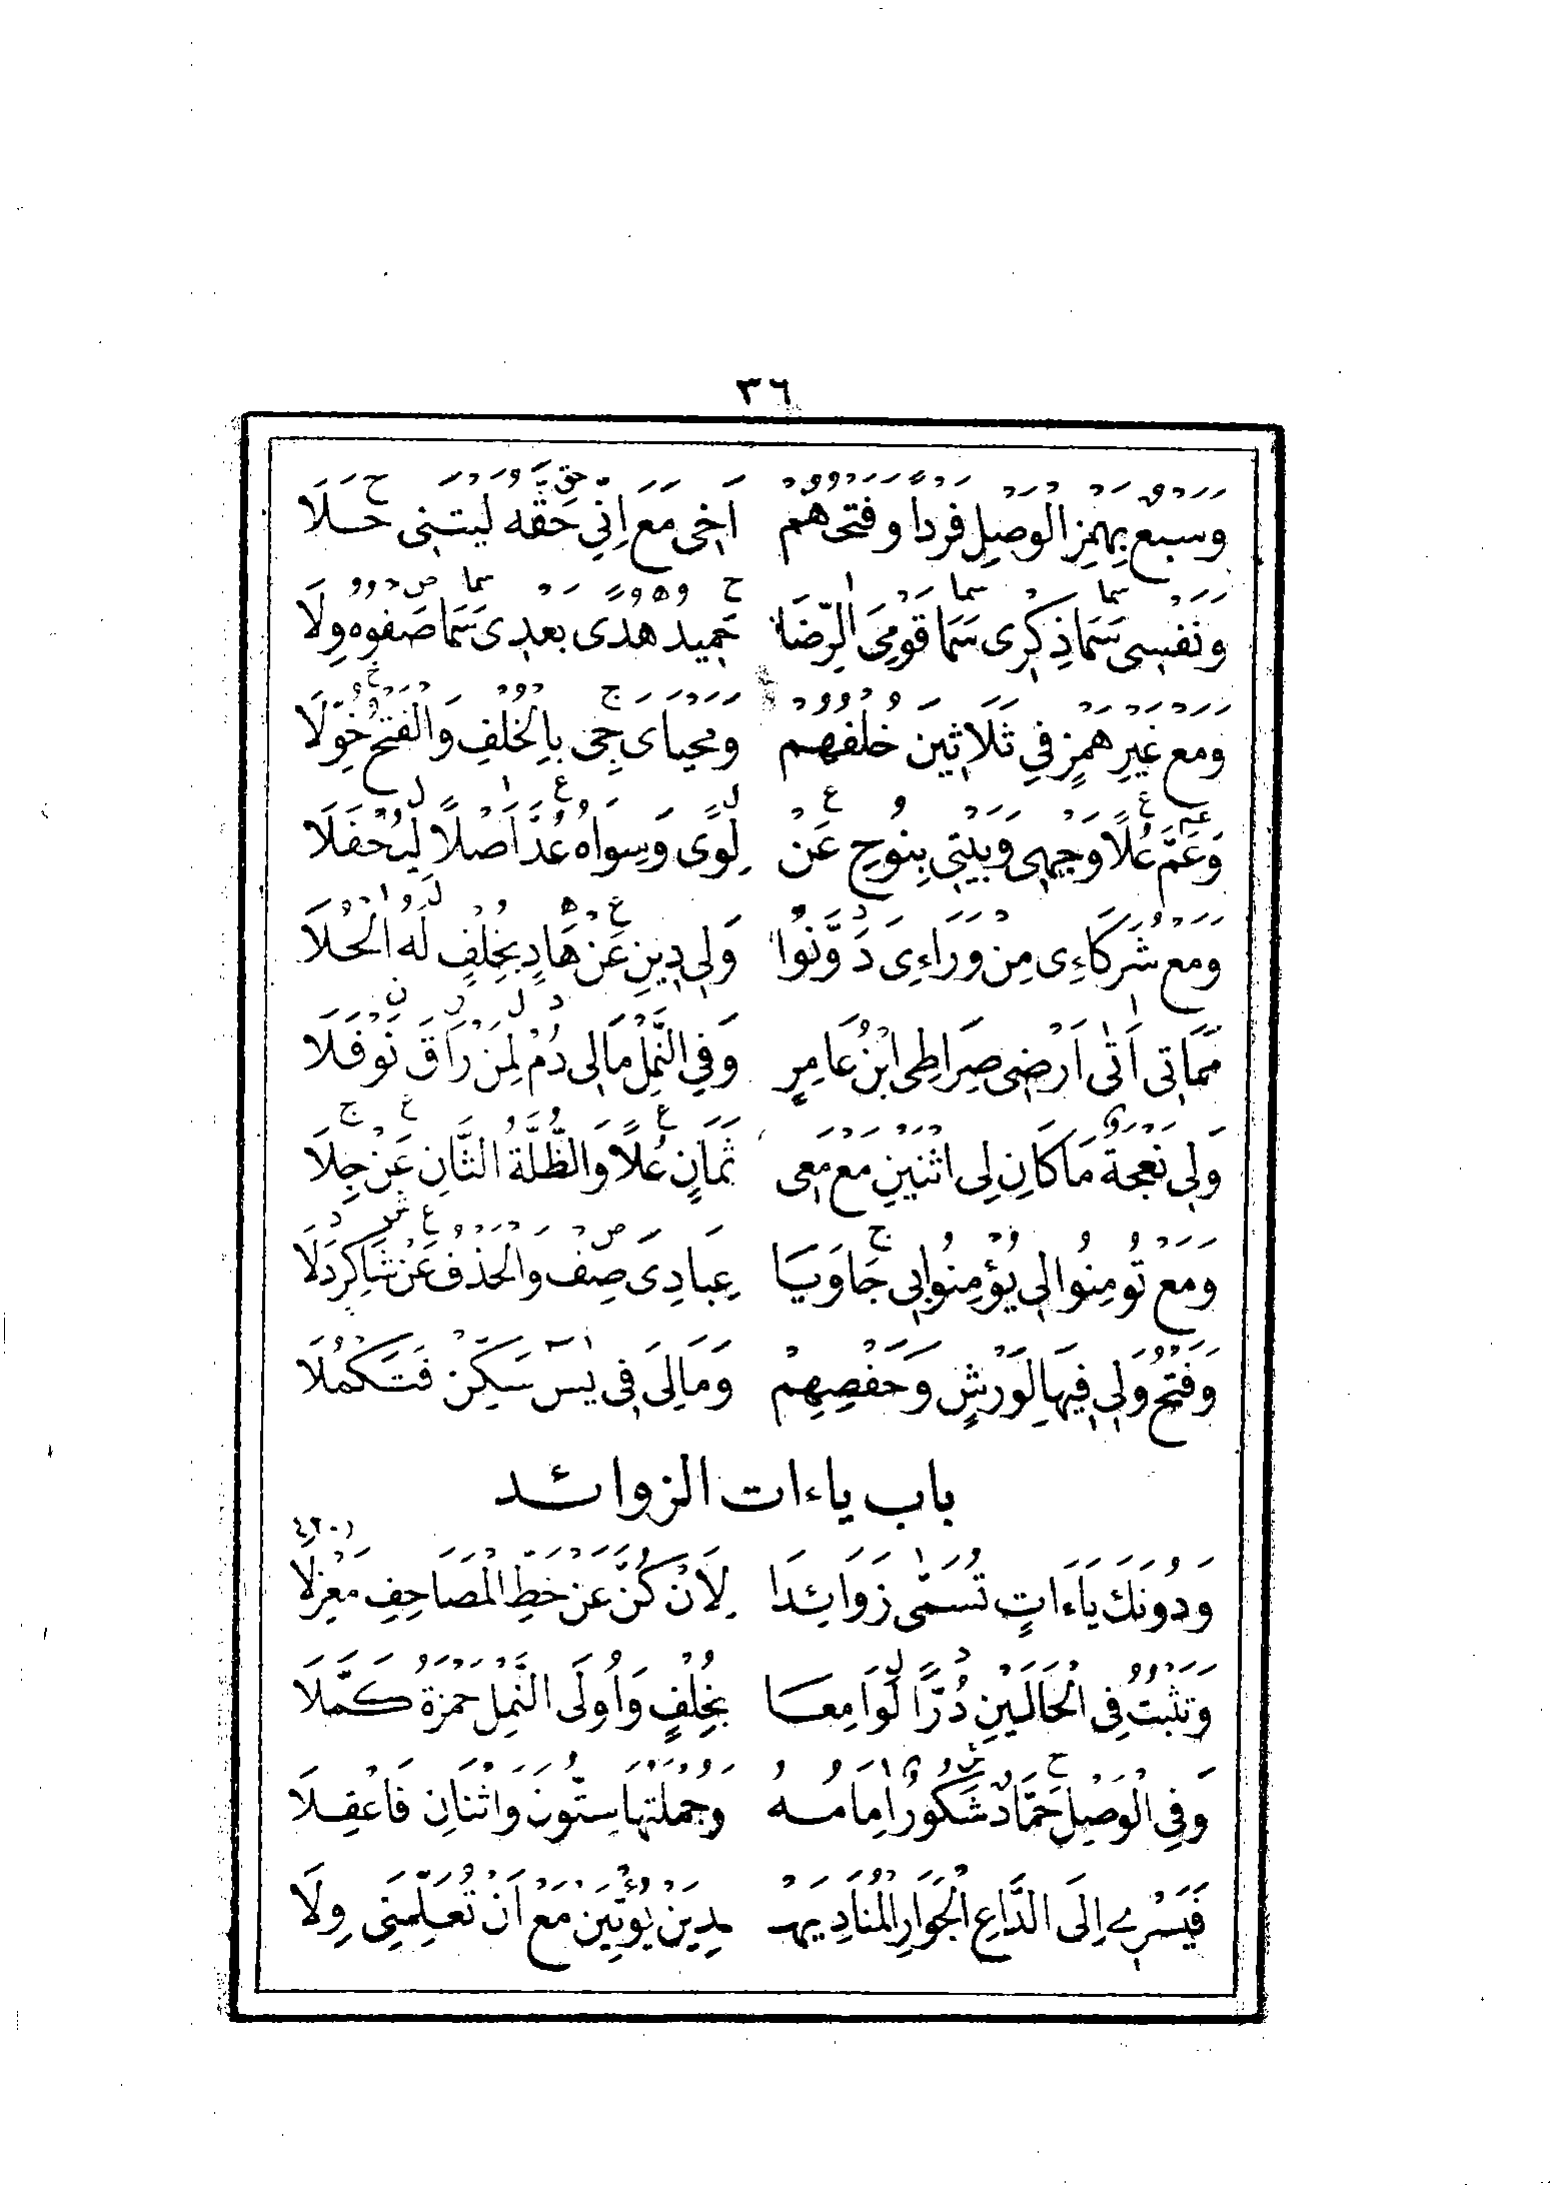 ٣٦
وَسَبْعٌ بِهَمْزِ الْوَصْلِ فَرْدًا وَفَتْحُهُمْ اَخِى مَعَ اِنِّى حَقُّهُ لَيْتَنِى حَلَا
وَنَفْسِى سَمَا ذِكْرِى سَمَا قَوْمِىَ الرِّضَا حَمِيدُ هُدًى بَعْدِى سَمَا صَفْوُهُ وِلَا
وَمَعْ غَيْرِ هَمْزٍ فِى ثَلَاثِينَ خُلْفُهُمْ وَمَحْيَاىَ جِى بِالْخُلْفِ وَالْفَتْحُ خُوِّلَا
وَعَمَّ عُلًا وَجْهِى وَبَيْتِى بِنُوحٍ عَنْ لِوًى وَسِوَاهُ عُدَّ اَصْلًا لِيُحْفَلَا
وَمَعْ شُرَكَاءِى مِنْ وَرَاءِى دَوَّنُوا وَلِى دِينِ عَنْ هَادٍ بِخُلْفٍ لَهُ الْحُلَا
مَمَاتِى اَتٰى اَرْضِى صِرَاطِى ابْنُ عَامِرٍ وَفِى النَّمْلِ مَالِى دُمْ لِمَنْ رَاقَ نَوْفَلَا
وَلِى نَعْجَةٌ مَا كَانَ لِى اثْنَيْنِ مَعْ مَعِى ثَمَانٍ عُلًا وَالظُّلَّةُ الثَّانِ عَنْ جِلَا
وَمَعْ تُومِنُوا لِى يُؤْمِنُوا بِى جَا وَيَا عِبَادِىَ صِفْ وَالْحَذْفُ عَنْ شَاكِرٍ دَلَا
وَفَتْحُ وَلِى فِيهَا لِوَرْشٍ وَحَفْصِهِمْ وَمَالِىَ فِى يٰسٓ سَكِّنْ فَتَكْمُلَا
باب ياءات الزوائد
٤٢٠
وَدُونَكَ يَاءَاتٍ تُسَمّٰى زَوَائِدَا لِاَنْ كُنَّ عَنْ خَطِّ الْمَصَاحِفِ مَعْزِلَا
وَتَثْبُتُ فِى الْحَالَيْنِ دُرًّا لَوَامِعَا بِخُلْفٍ وَاُولَى النَّمْلِ حَمْزَةُ كَمَّلَا
وَفِى الْوَصْلِ حَمَّادٌ شَكُورٌ اِمَامُهُ وَجُمْلَتُهَا سِتُّونَ وَاثْنَانِ فَاعْقِلَا
فَيَسْرِى اِلَى الدَّاعِ الْجَوَارِ الْمُنَادِ يَهْـ ـدِيَنْ يُؤْتِيَنْ مَعْ اَنْ تُعَلِّمَنِى وِلَا